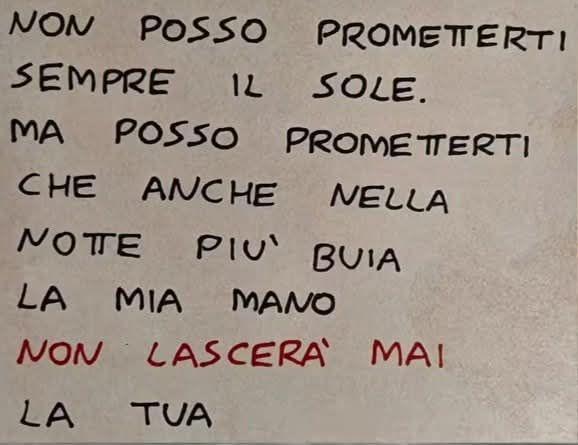 NON POSSO PROMETTERTI
SEMPRE IL SOLE.
MA POSSO PROMETTERTI
CHE ANCHE NELLA
NOTTE PIU' BUIA
LA MIA MANO
NON LASCERA' MAI
LA TUA